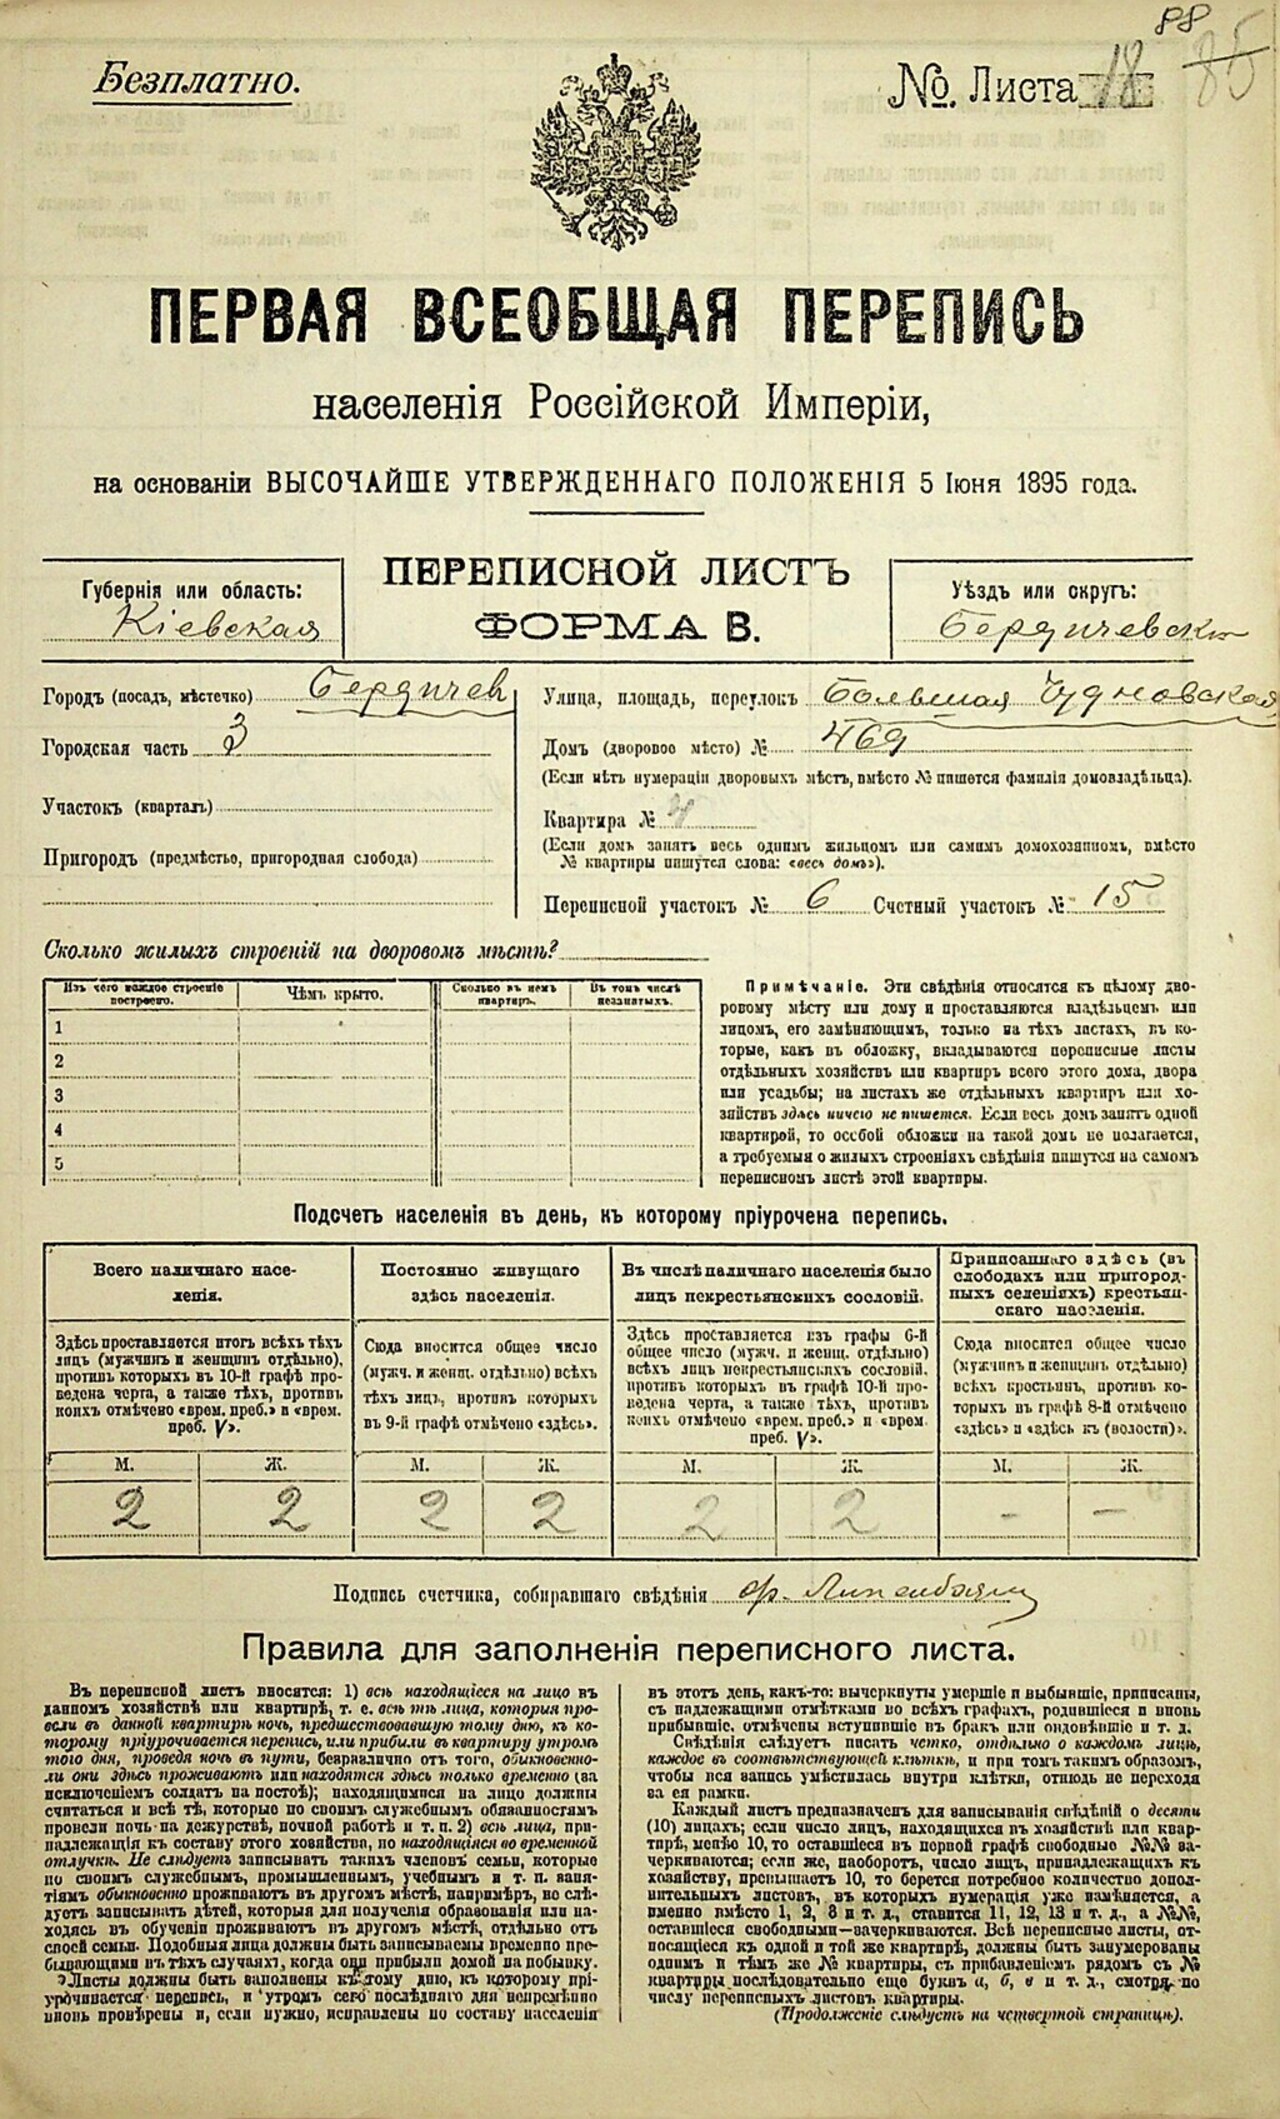 88
85
Безплатно.
№. Листа 18
ПЕРВАЯ ВСЕОБЩАЯ ПЕРЕПИСЬ
населенія Россійской Имперіи,
на основаніи ВЫСОЧАЙШЕ УТВЕРЖДЕННАГО ПОЛОЖЕНІЯ 5 Іюня 1895 года.
Губернія или область:
Кіевская
ПЕРЕПИСНОЙ ЛИСТЪ
ФОРМА В.
Уѣздъ или округъ:
Бердичевскій
Городъ (посадъ, мѣстечко) Бердичев
Городская часть 3
Участокъ (кварталъ)
Пригородъ (предмѣстье, пригородная слобода)
Улица, площадь, переулокъ Большая Чудновская
Домъ (дворовое мѣсто) № 469
(Если нѣтъ нумераціи дворовыхъ мѣстъ, вмѣсто № пишется фамилія домовладѣльца).
Квартира № 4
(Если домъ занятъ весь однимъ жильцомъ или самимъ домохозяиномъ, вмѣсто
№ квартиры пишутся слова: «весь домъ»).
Переписной участокъ № 6 Счетный участокъ № 15
Сколько жилыхъ строеній на дворовомъ мѣстѣ?
Изъ чего каждое строеніе построено.
Чѣмъ крыто.
Сколько въ немъ квартиръ.
Въ томъ числѣ незанятыхъ.
1
2
3
4
5
Примѣчаніе. Эти свѣдѣнія относятся къ цѣлому дво-
ровому мѣсту или дому и проставляются владѣльцемъ или
лицомъ, его замѣняющимъ, только на тѣхъ листахъ, въ ко-
торые, какъ въ обложку, вкладываются переписные листы
отдѣльныхъ хозяйствъ или квартиръ всего этого дома, двора
или усадьбы; на листахъ же отдѣльныхъ квартиръ или хо-
зяйствъ здѣсь ничего не пишется. Если весь домъ занятъ одной
квартирой, то особой обложки на такой домъ не полагается,
а требуемыя о жилыхъ строеніяхъ свѣдѣнія пишутся на самомъ
переписномъ листѣ этой квартиры.
Подсчетъ населенія въ день, къ которому пріурочена перепись.
Всего наличнаго насе-
ленія.
Здѣсь проставляется итогъ всѣхъ тѣхъ
лицъ (мужчинъ и женщинъ отдѣльно),
противъ которыхъ въ 10-й графѣ про-
ведена черта, а также тѣхъ, противъ
коихъ отмѣчено «врем. преб.» и «врем.
преб. V».
М. Ж.
2 2
Постоянно живущаго
здѣсь населенія.
Сюда вносится общее число
(мужч. и женщ. отдѣльно) всѣхъ
тѣхъ лицъ, противъ которыхъ
въ 9-й графѣ отмѣчено «здѣсь».
М. Ж.
2 2
Въ числѣ наличнаго населенія было
лицъ некрестьянскихъ сословій.
Здѣсь проставляется изъ графы 6-й
общее число (мужч. и женщ. отдѣльно)
всѣхъ лицъ некрестьянскихъ сословій,
противъ которыхъ въ графѣ 10-й про-
ведена черта, а также тѣхъ, противъ
коихъ отмѣчено «врем. преб.» и «врем.
преб. V».
М. Ж.
2 2
Приписаннаго здѣсь (въ
слободахъ или пригород-
ныхъ селеніяхъ) крестьян-
скаго населенія.
Сюда вносится общее число
(мужчинъ и женщинъ отдѣльно)
всѣхъ крестьянъ, противъ ко-
торыхъ въ графѣ 8-й отмѣчено
«здѣсь» и «здѣсь къ (волости)».
М. Ж.
- -
Подпись счетчика, собиравшаго свѣдѣнія
Правила для заполненія переписного листа.
Въ переписной листъ вносятся: 1) всѣ находящіеся на лицо въ
данномъ хозяйствѣ или квартирѣ, т. е. всѣ тѣ лица, которыя про-
вели въ данной квартирѣ ночь, предшествовавшую тому дню, къ ко-
торому пріурочивается перепись, или прибыли въ квартиру утромъ
того дня, проведя ночь въ пути, безразлично отъ того, обыкновенно-
ли они здѣсь проживаютъ или находятся здѣсь только временно (за
исключеніемъ солдатъ на постоѣ); находящимися на лицо должны
считаться и всѣ тѣ, которые по своимъ служебнымъ обязанностямъ
провели ночь на дежурствѣ, ночной работѣ и т. п. 2) всѣ лица, при-
надлежащія къ составу этого хозяйства, но находящіяся во временной
отлучкѣ. Не слѣдуетъ записывать такихъ членовъ семьи, которые
по своимъ служебнымъ, промышленнымъ, учебнымъ и т. п. заня-
тіямъ обыкновенно проживаютъ въ другомъ мѣстѣ, напримѣръ, не слѣ-
дуетъ записывать дѣтей, которыя для полученія образованія или на-
ходясь въ обученіи проживаютъ въ другомъ мѣстѣ, отдѣльно отъ
своей семьи. Подобныя лица должны быть записываемы временно пре-
бывающими въ тѣхъ случаяхъ, когда они прибыли домой на побывку.
Листы должны быть заполнены къ тому дню, къ которому прі-
урочивается перепись, и утромъ сего послѣдняго дня непремѣнно
вновь провѣрены и, если нужно, исправлены по составу населенія
въ этотъ день, какъ-то: вычеркнуты умершіе и выбывшіе, приписаны,
съ надлежащими отмѣтками во всѣхъ графахъ, родившіеся и вновь
прибывшіе, отмѣчены вступившіе въ бракъ или овдовѣвшіе и т. д.
Свѣдѣнія слѣдуетъ писать четко, отдѣльно о каждомъ лицѣ,
каждое въ соотвѣтствующей клѣткѣ, и при томъ такимъ образомъ,
чтобы вся запись умѣстилась внутри клѣтки, отнюдь не переходя
за ея рамки.
Каждый листъ предназначенъ для записыванія свѣдѣній о десяти
(10) лицахъ; если число лицъ, находящихся въ хозяйствѣ или квар-
тирѣ, менѣе 10, то оставшіеся въ первой графѣ свободные №№ за-
черкиваются; если же, наоборотъ, число лицъ, принадлежащихъ къ
хозяйству, превышаетъ 10, то берется потребное количество допол-
нительныхъ листовъ, въ которыхъ нумерація уже измѣняется, а
именно вмѣсто 1, 2, 3 и т. д., ставится 11, 12, 13 и т. д., а №№,
оставшіеся свободными—зачеркиваются. Всѣ переписные листы, от-
носящіеся къ одной и той же квартирѣ, должны быть занумерованы
однимъ и тѣмъ же № квартиры, съ прибавленіемъ рядомъ съ №
квартиры послѣдовательно еще буквъ а, б, в и т. д., смотря по
числу переписныхъ листовъ квартиры.
(Продолженіе слѣдуетъ на четвертой страницѣ).